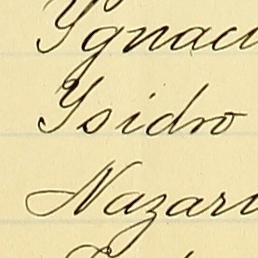 Ygnaci
Ysidro
Nazari